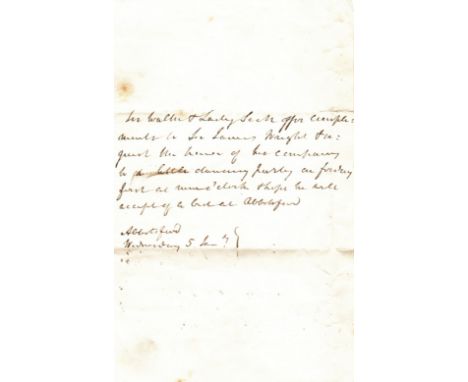 Sir Walter & Lady Scott offer compli=
ments to Sir James Wright & re:
quest the honor of his company
to a little dancing party on friday
first at nine o'clock & hope he will
accept of a bed at Abbotsford
Abbotsford
Wednesday 5 Jany